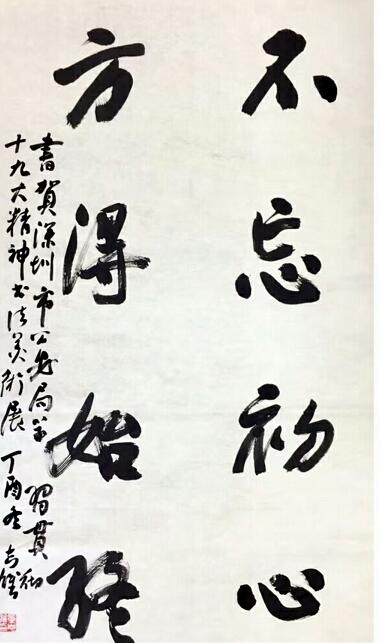 不忘初心
方得始终
書贺深圳市公安局学习贯彻
十九大精神书法美術展 丁酉冬